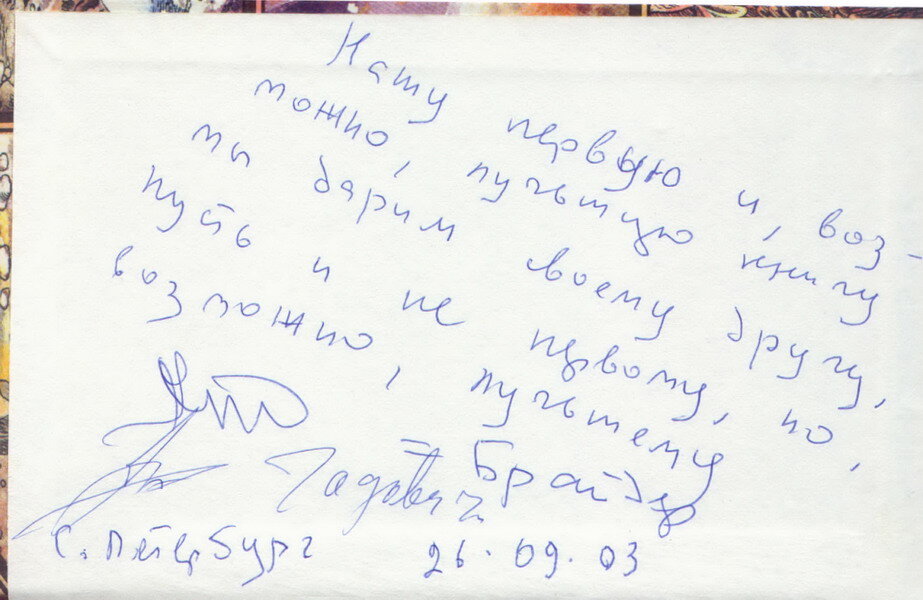 Нашу первую и, воз-
можно, лучшую книгу
мы дарим своему другу,
пусть и не первому, но,
возможно, лучшему
Брайдер
Чадович
С. Петербург 26.09.03